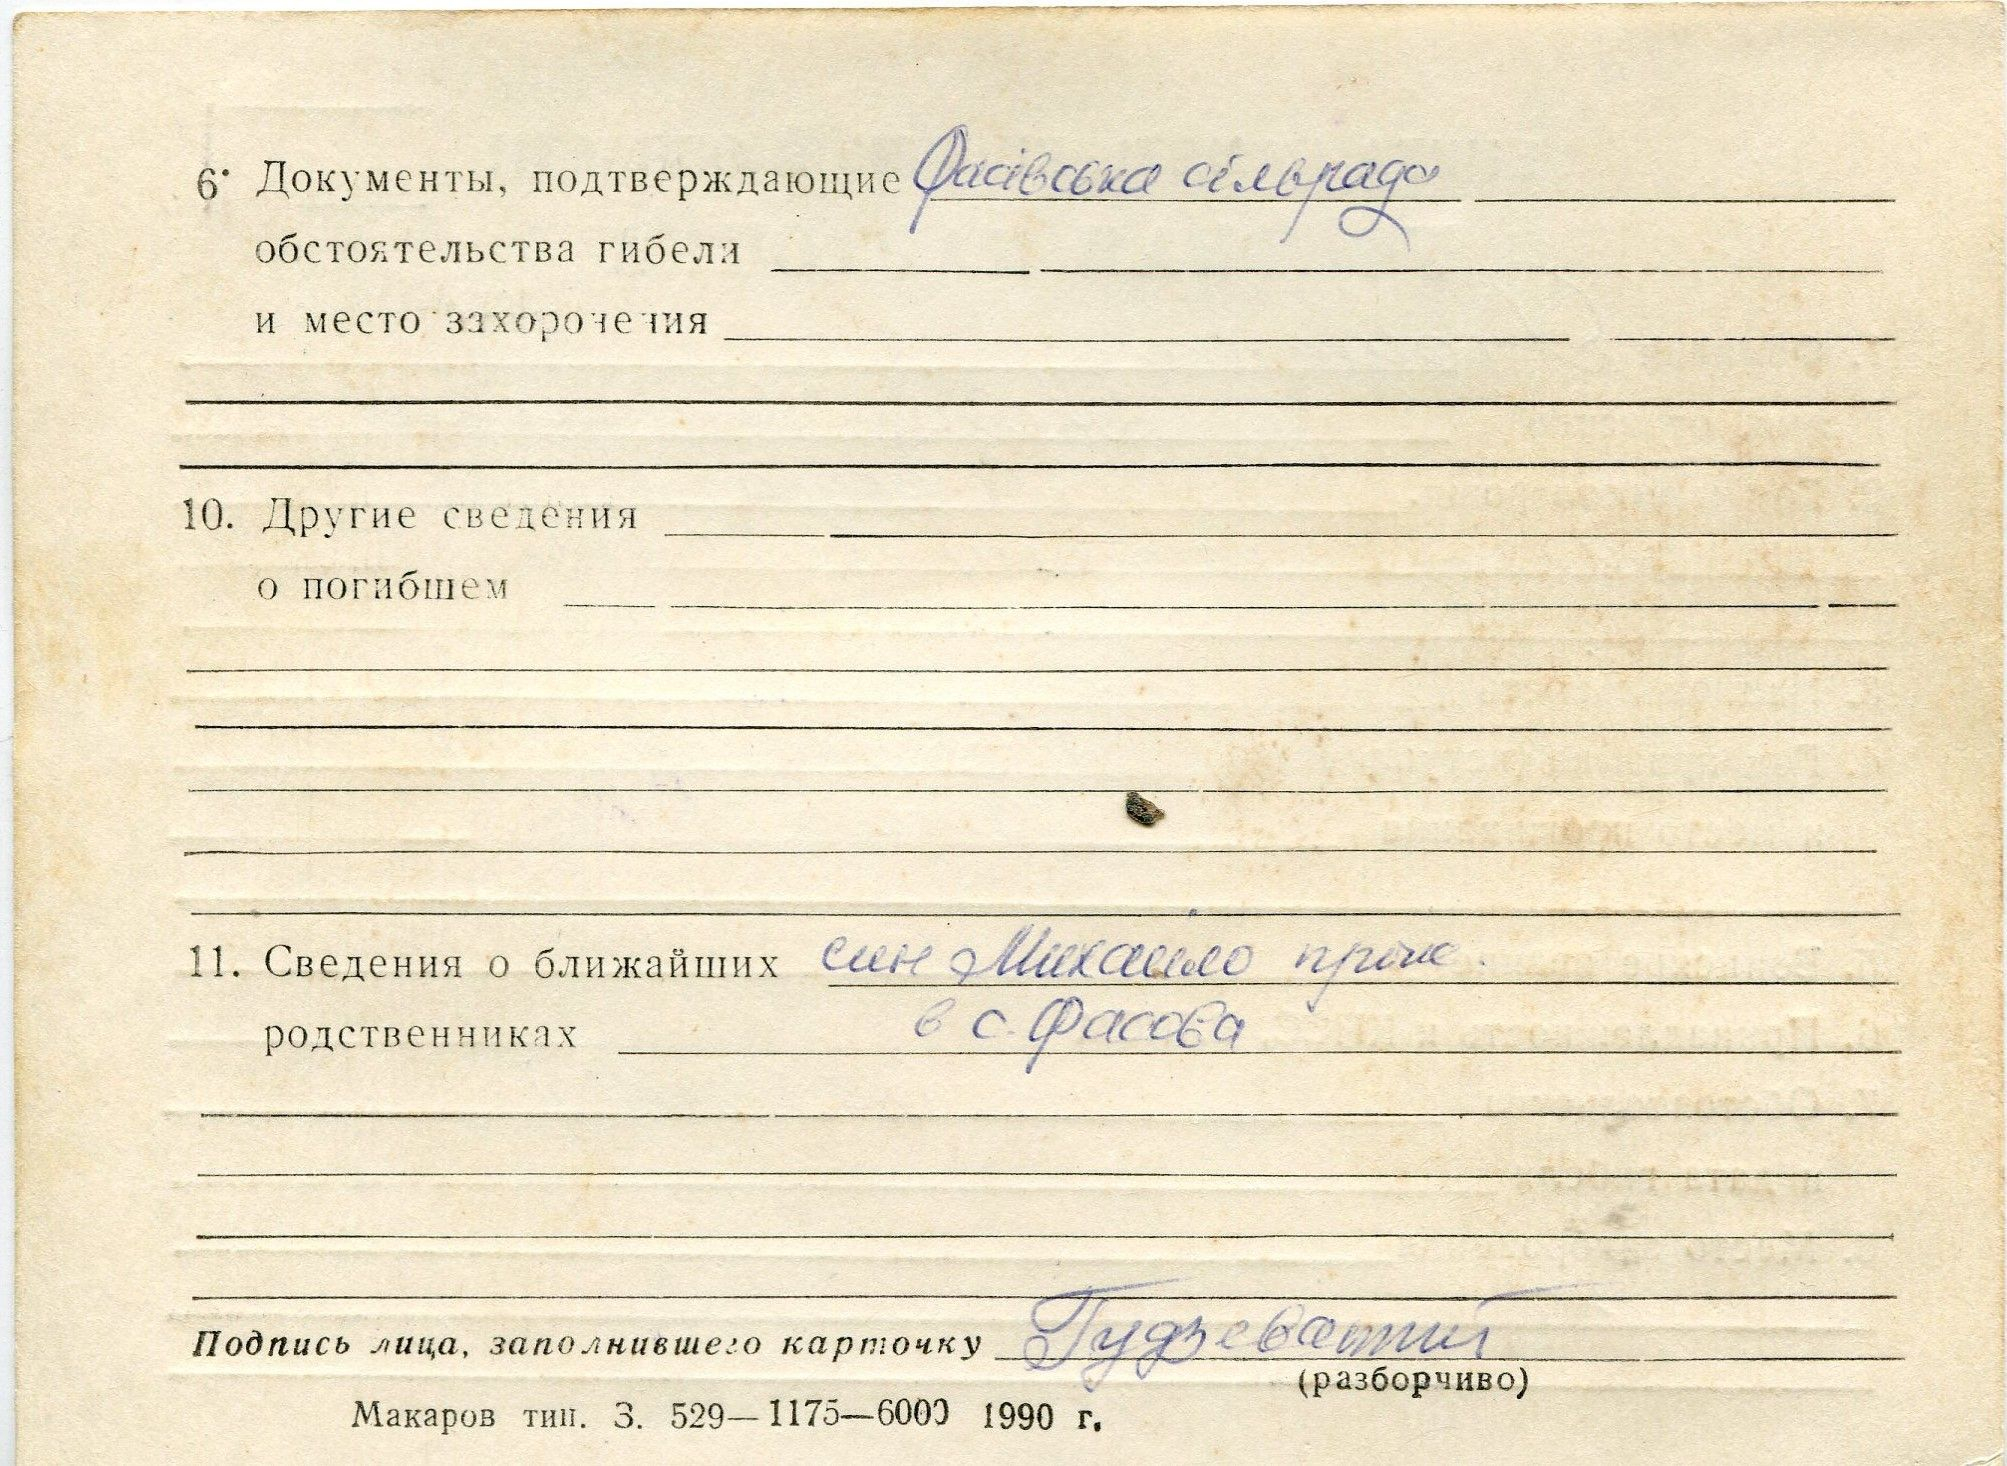 6. Документы, подтверждающие Фасівська сільрада
обстоятельства гибели
и место захоронения
10. Другие сведения
о погибшем
11. Сведения о ближайших син Михайло прож.
родственниках в с. Фасова
Подпись лица, заполнившего карточку Гудзеватий
(разборчиво)
Макаров тип. З. 529—1175—6000 1990 г.